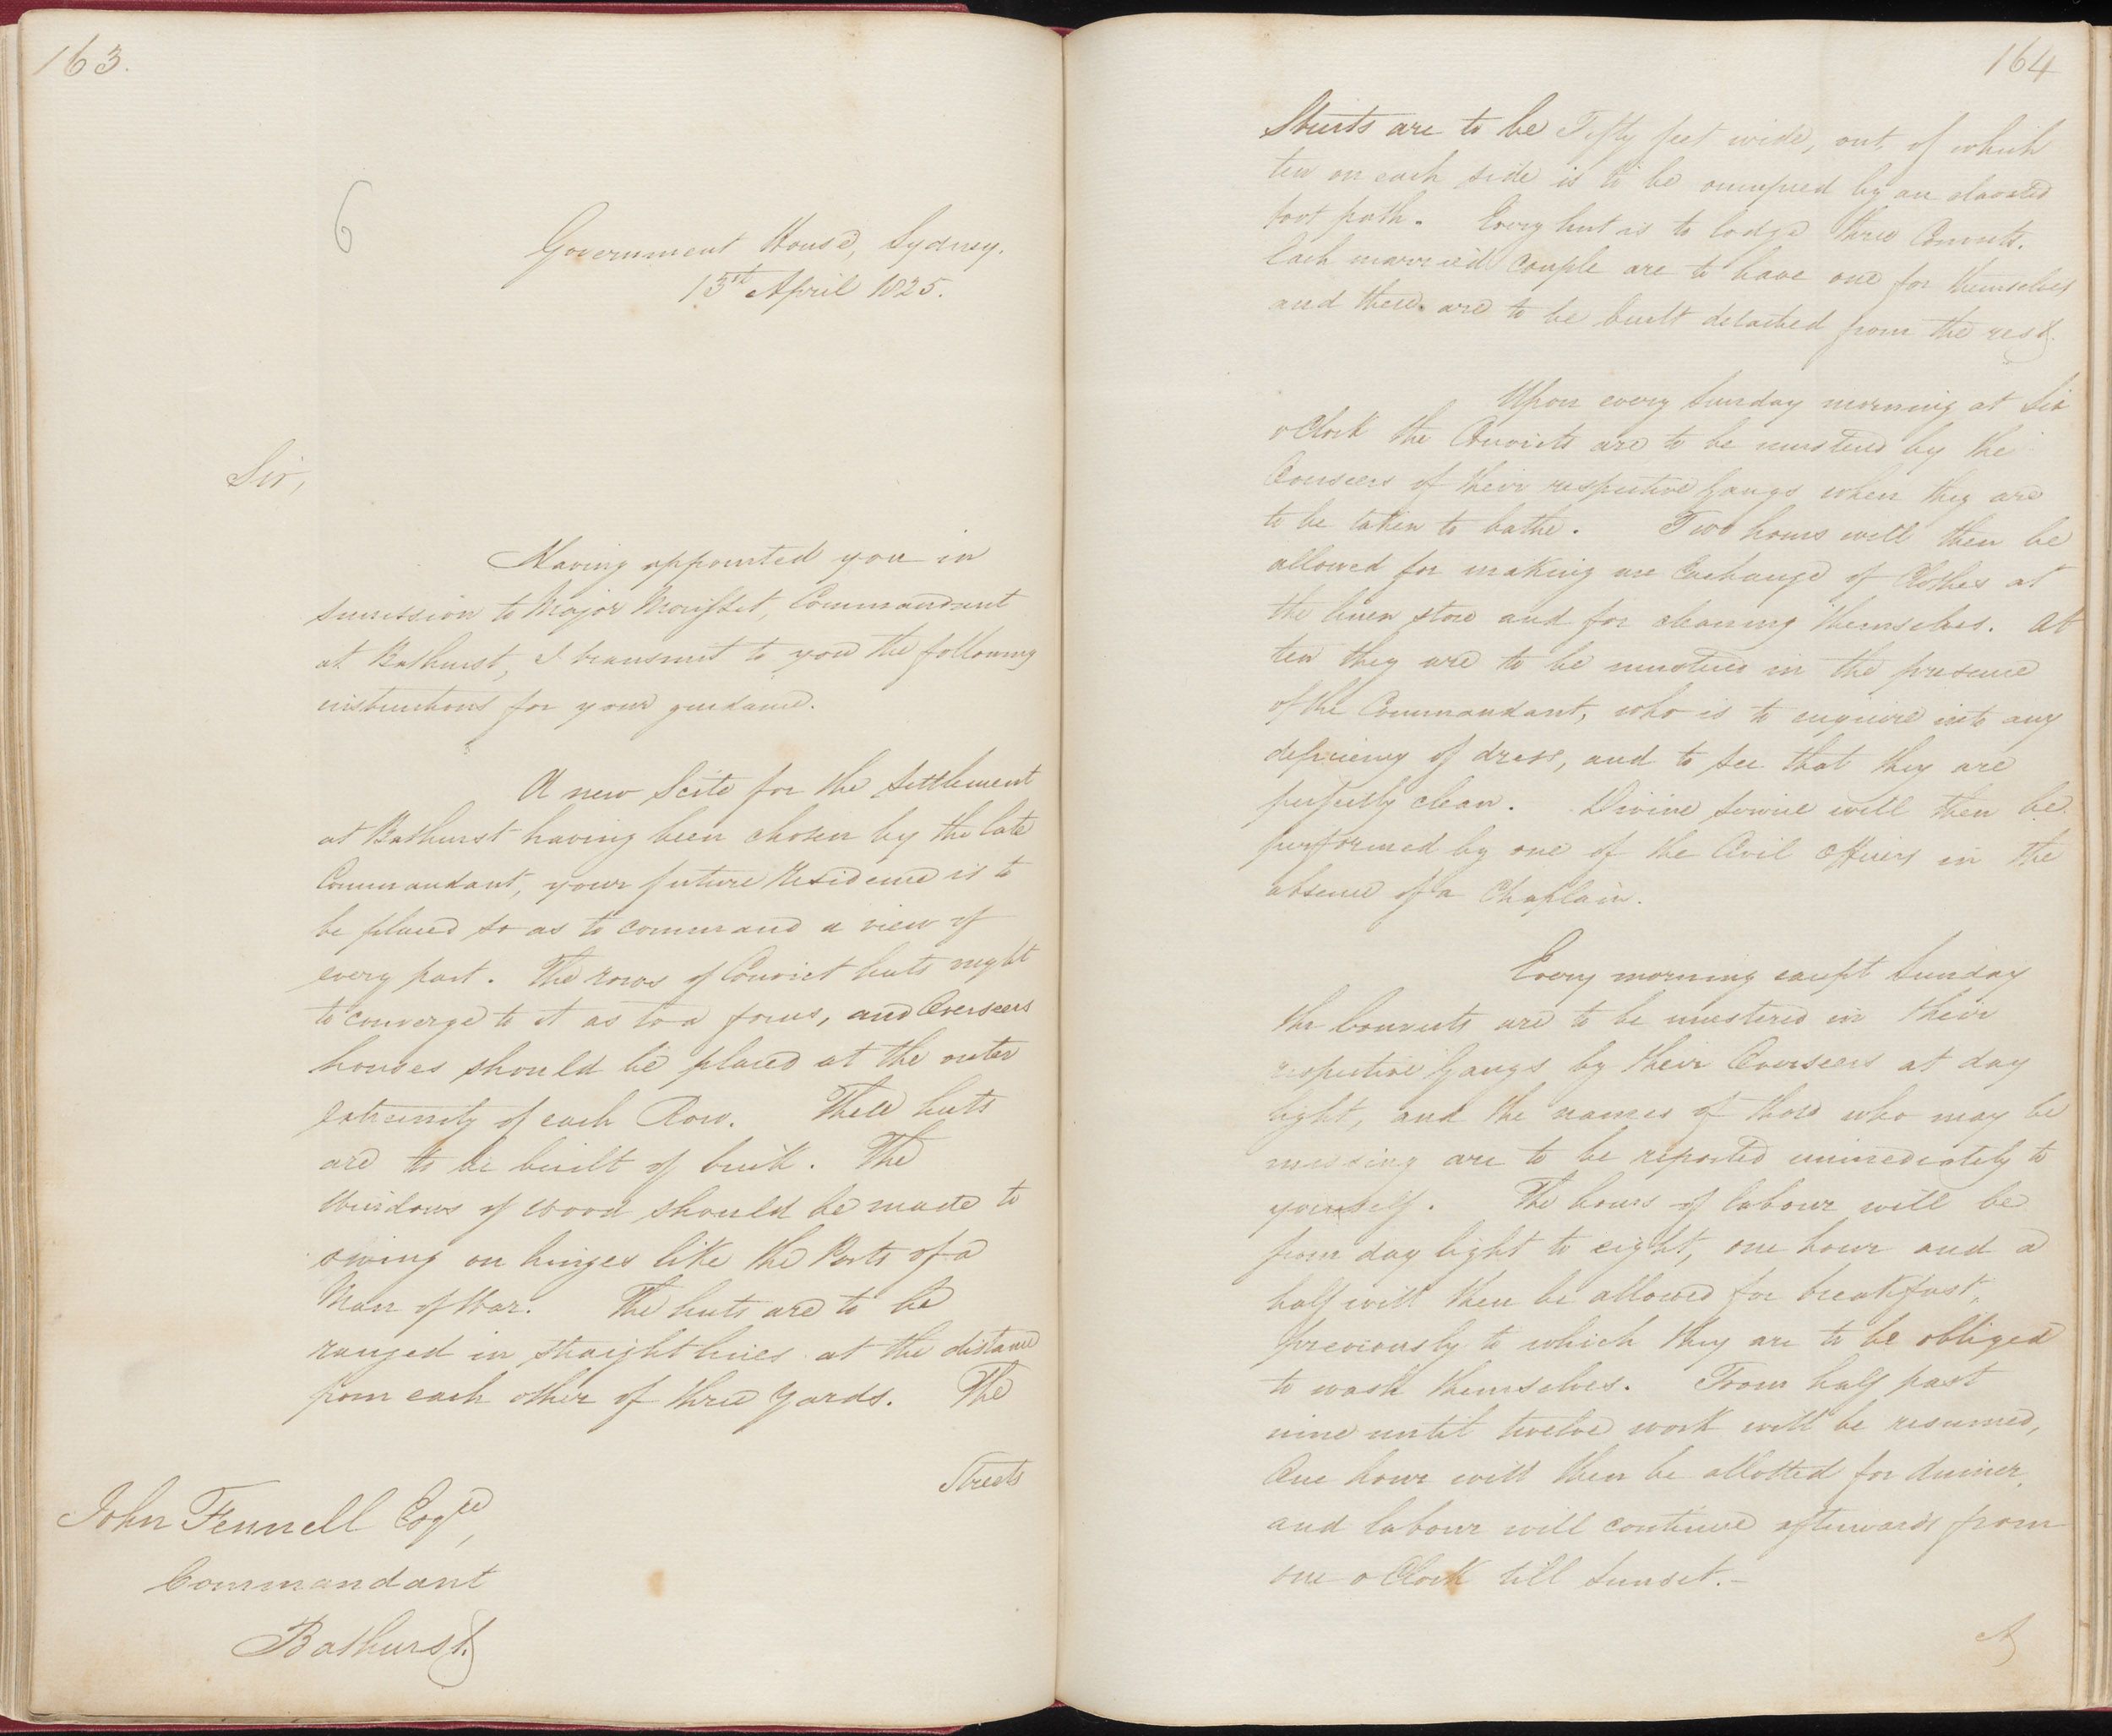 163.
6
Government House, Sydney.
15th April 1825.
Sir,
Having appointed you in
succession to Major Morisset, Commandant
at Bathurst, I transmit to you the following
instructions for your guidance.
A new Scite for the Settlement
at Bathurst having been chosen by the late
Commandant, your future Residence is to
be placed so as to command a view of
every part. The rows of Convict huts might
to converge to it as to a focus, and Overseers
houses should be placed at the outer
extremity of each Row. These huts
are to be built of brick. The
Windows of wood should be made to
swing on hinges like the Ports of a
Man of War. The huts are to be
ranged in straight lines at the distance
from each other of three Yards. The
Streets
John Fennell Esqre,
Commandant
Bathurst.
164
Streets are to be Fifty feet wide, out of which
ten on each side is to be occupied by an elevated
foot path. Every hut is to lodge three Convicts.
Each married couple are to have one for themselves
and these are to be built detached from the rest.
Upon every Sunday morning at Six
o Clock the Convicts are to be mustered by the
Overseers of their respective Gangs when they are
to be taken to bathe. Two hours will then be
allowed for making an Exchange of Clothes at
the linen store and for cleaning themselves. At
ten they are to be mustered in the presence
of the Commandant, who is to enquire into any
deficiency of dress, and to see that they are
perfectly clean. Divine Service will then be
performed by one of the Civil Officers in the
absence of a Chaplain.
Every morning except Sunday
the Convicts are to be mustered in their
respective Gangs by their Overseers at day
light, and the names of those who may be
missing are to be reported immediately to
yourself. The hours of labour will be
from day light to eight, one hour and a
half will then be allowed for breakfast,
previously to which they are to be obliged
to wash themselves. From half past
nine until twelve work will be resumed,
One hour will then be allotted for dinner,
and labour will continue afterwards from
one o Clock till Sunset.—
A